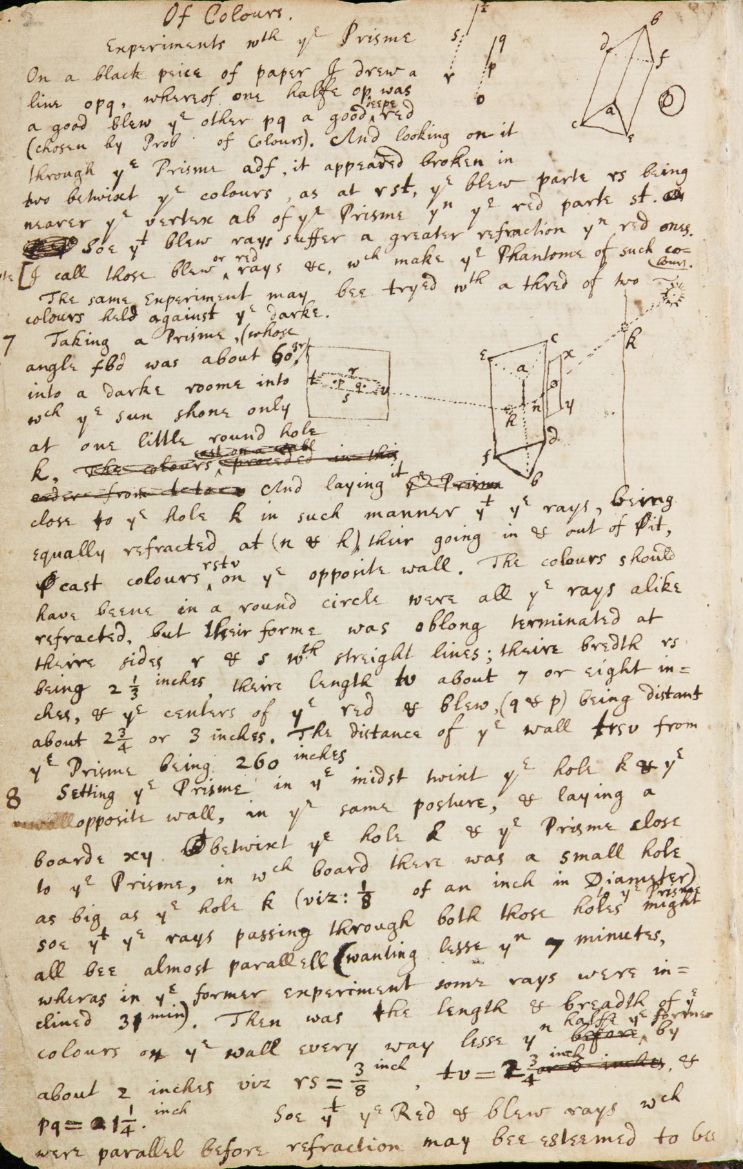 Of Colours.
Experiments wth ye Prisme
On a black peice of paper I drew a
line opq, whereof one halfe op was
a good blew ye other pq a good deepe red
(chosen by Prob of Colours). And looking on it
through ye Prisme adf, it appeared broken in
two betwixt ye colours, as at rst, ye blew parte rs being
nearer ye vertex ab of ye Prisme yn ye red parte st.
Soe yt blew rays suffer a greater refraction yn red ones.
[I call those blew or red rays &c, wch make ye Phantome of such co=
lours.
The same Experiment may bee tryed wth a thred of two
colours held against ye darke.
7 Taking a Prisme, (whose
angle fbd was about 60gr)
into a darke roome into
wch ye sun shone only
at one little round hole
k, The colours cast on a wall proceded in this
order from t to v And laying it ye Prisme
close to ye hole k in such manner yt ye rays, being
equally refracted at (n & h) their going in & out of it,
cast colours rstv on ye opposite wall. The colours should
have beene in a round circle were all ye rays alike
refracted, but their forme was oblong terminated at
theire sides r & s wth streight lines; theire bredth rs
being 2 1/3 inches, theire length tv about 7 or eight in=
ches, & ye centers of ye red & blew, (q & p) being distant
about 2 3/4 or 3 inches. The distance of ye wall trsv from
ye Prisme being 260 inches
8 Setting ye Prisme in ye midst twixt ye hole k & ye
opposite wall, in ye same posture, & laying a
boarde xy betwixt ye hole k & ye Prisme close
to ye Prisme, in wch board there was a small hole
as big as ye hole k (viz: 1/8 of an inch in Diameter)
soe yt ye rays passing through both those holes to ye Prisme might
all bee almost parallell (wanting lesse yn 7 minutes,
wheras in ye former experiment some rays were in=
clined 31 min). Then was the length & breadth of ye
colours on ye wall every way lesse yn halfe ye former before, by
about 2 inches viz rs = 3/8 inch, tv = 2 3/4 inch or 3 inches, &
pq = 1 1/4 inch. Soe yt ye Red & blew rays wch
were parallel before refraction may bee esteemed to bee